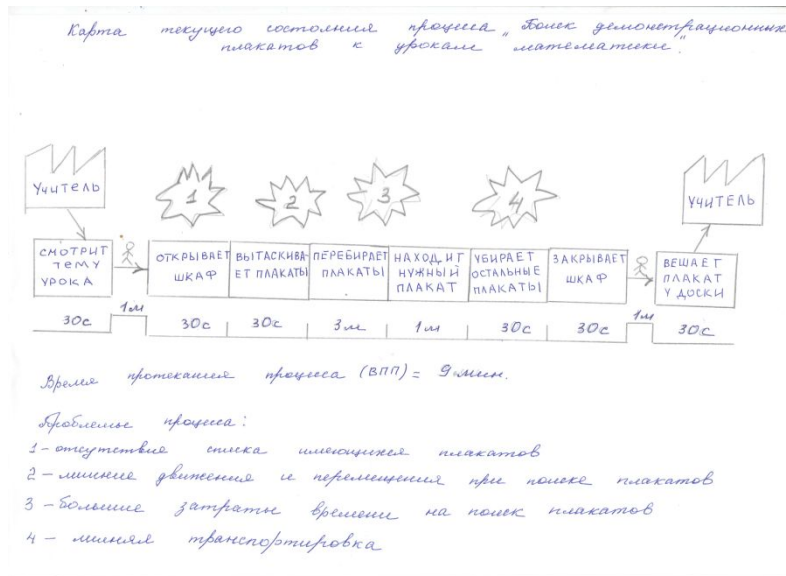 Карта текущего состояния процесса „Поиск демонстрационных
плакатов к урокам математики".
УЧИТЕЛЬ
1
2
3
4
УЧИТЕЛЬ
СМОТРИТ
ТЕМУ
УРОКА
ОТКРЫВАЕТ
ШКАФ
ВЫТАСКИВА-
ЕТ ПЛАКАТЫ
ПЕРЕБИРАЕТ
ПЛАКАТЫ
НАХОДИТ
НУЖНЫЙ
ПЛАКАТ
УБИРАЕТ
ОСТАЛЬНЫЕ
ПЛАКАТЫ
ЗАКРЫВАЕТ
ШКАФ
ВЕШАЕТ
ПЛАКАТ
У ДОСКИ
30с 1м 30с 30с 3м 1м 30с 30с 1м 30с
Время протекания процесса (ВПП) = 9 мин.
Проблемы процесса:
1 – отсутствие списка имеющихся плакатов
2 – лишние движения и перемещения при поиске плакатов
3 – большие затраты времени на поиск плакатов
4 – лишняя транспортировка